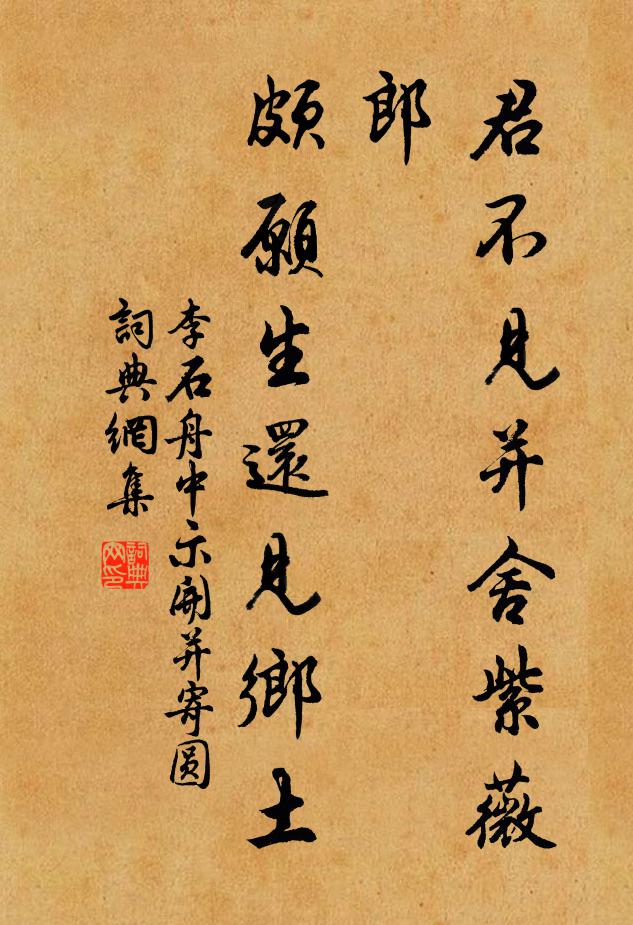 君不見并舍紫薇
郎
頗願生還見鄉土
李石舟中示開并寄圆
詞典網集
詞典
网印